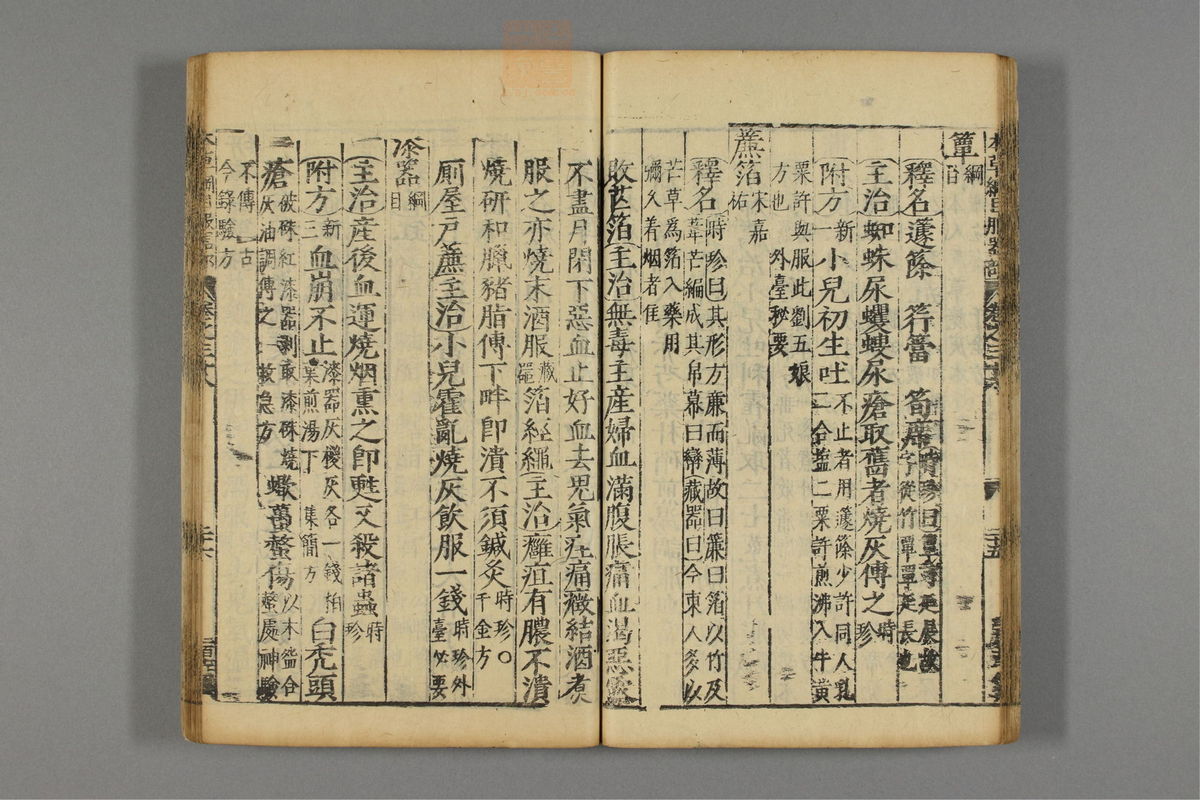 簟綱目
釋名籧篨 筕簹 筍席時珍曰簟
字從竹覃覃延長也
主治蜘蛛尿蠼螋尿瘡取舊者燒灰傅之時珍
附方新一小兒初生吐不止者用籧篨少許同人乳
二合鹽二粟許煎沸入牛黃
粟許與服此劉五娘
方也 外臺秘要
簾箔宋嘉祐
釋名時珍曰其形方廉而薄故曰簾曰箔以竹及
葦芒編成其帛幕曰幨藏器曰今東人多以
芒草為箔入藥用
彌久着烟者佳
敗芒箔主治無毒主産婦血滿腹脹痛血渴惡露
不盡月閉下惡血止好血去鬼氣疰痛癥結酒煮
服之亦燒末酒服藏器箔經繩主治癰疽有膿不潰
燒研和臘豬脂傅下畔即潰不須鍼灸時珍○千金方
廁屋戶簾主治小兒霍亂燒灰飲服一錢時珍外臺必要
漆器綱目
主治産後血運燒烟熏之即甦又殺諸蟲時珍
附方新三血崩不止漆器灰椶灰各一錢柏
葉煎湯下 集簡方白禿頭
瘡破硃紅漆器剥取漆硃燒
灰油調傅之 救急方蠍蠆螫傷以木盌合
螫處神驗
不傳 古
今錄驗方